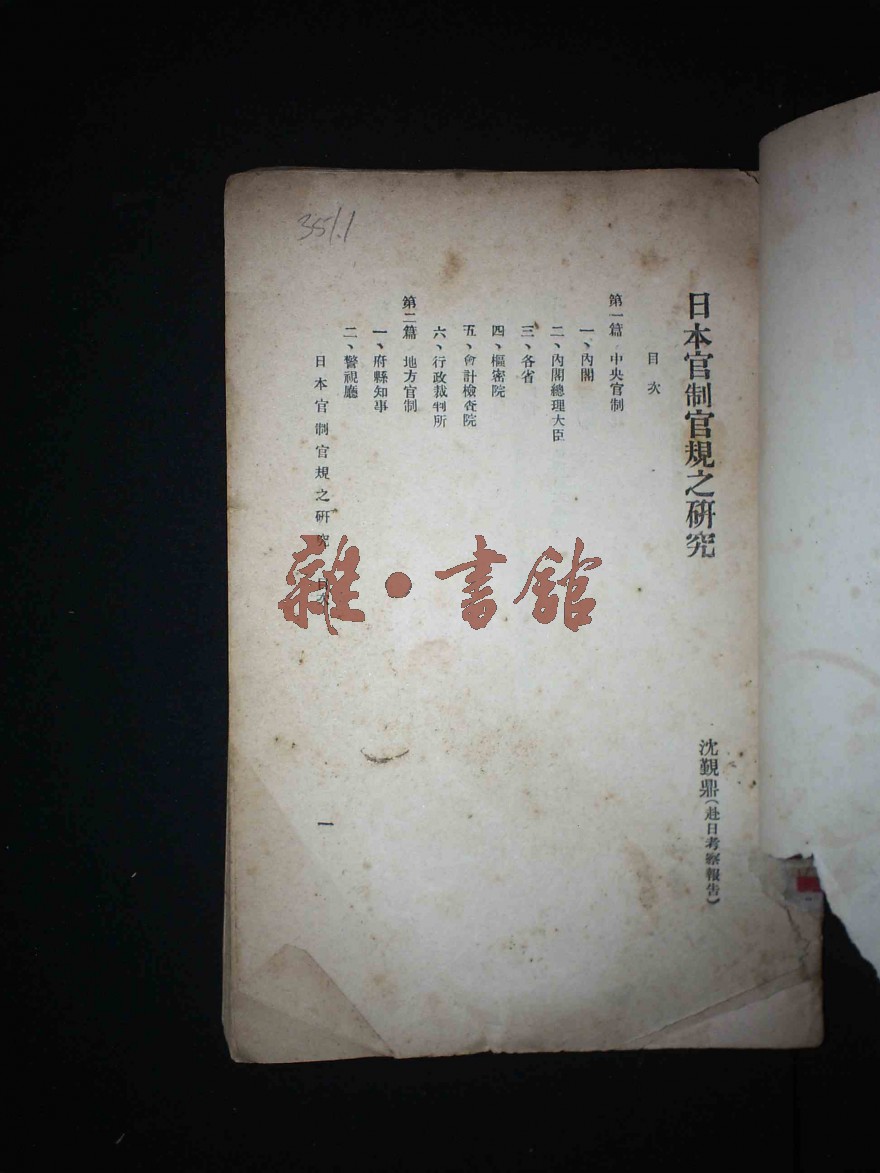 日本官制官規之研究
沈覲鼎(赴日考察報告)
目次
第一篇 中央官制
一、內閣
二、內閣總理大臣
三、各省
四、樞密院
五、會計檢查院
六、行政裁判所
第二篇 地方官制
一、府縣知事
二、警視廳
日本官制官規之研究 目次
一
351.1
雜·書館